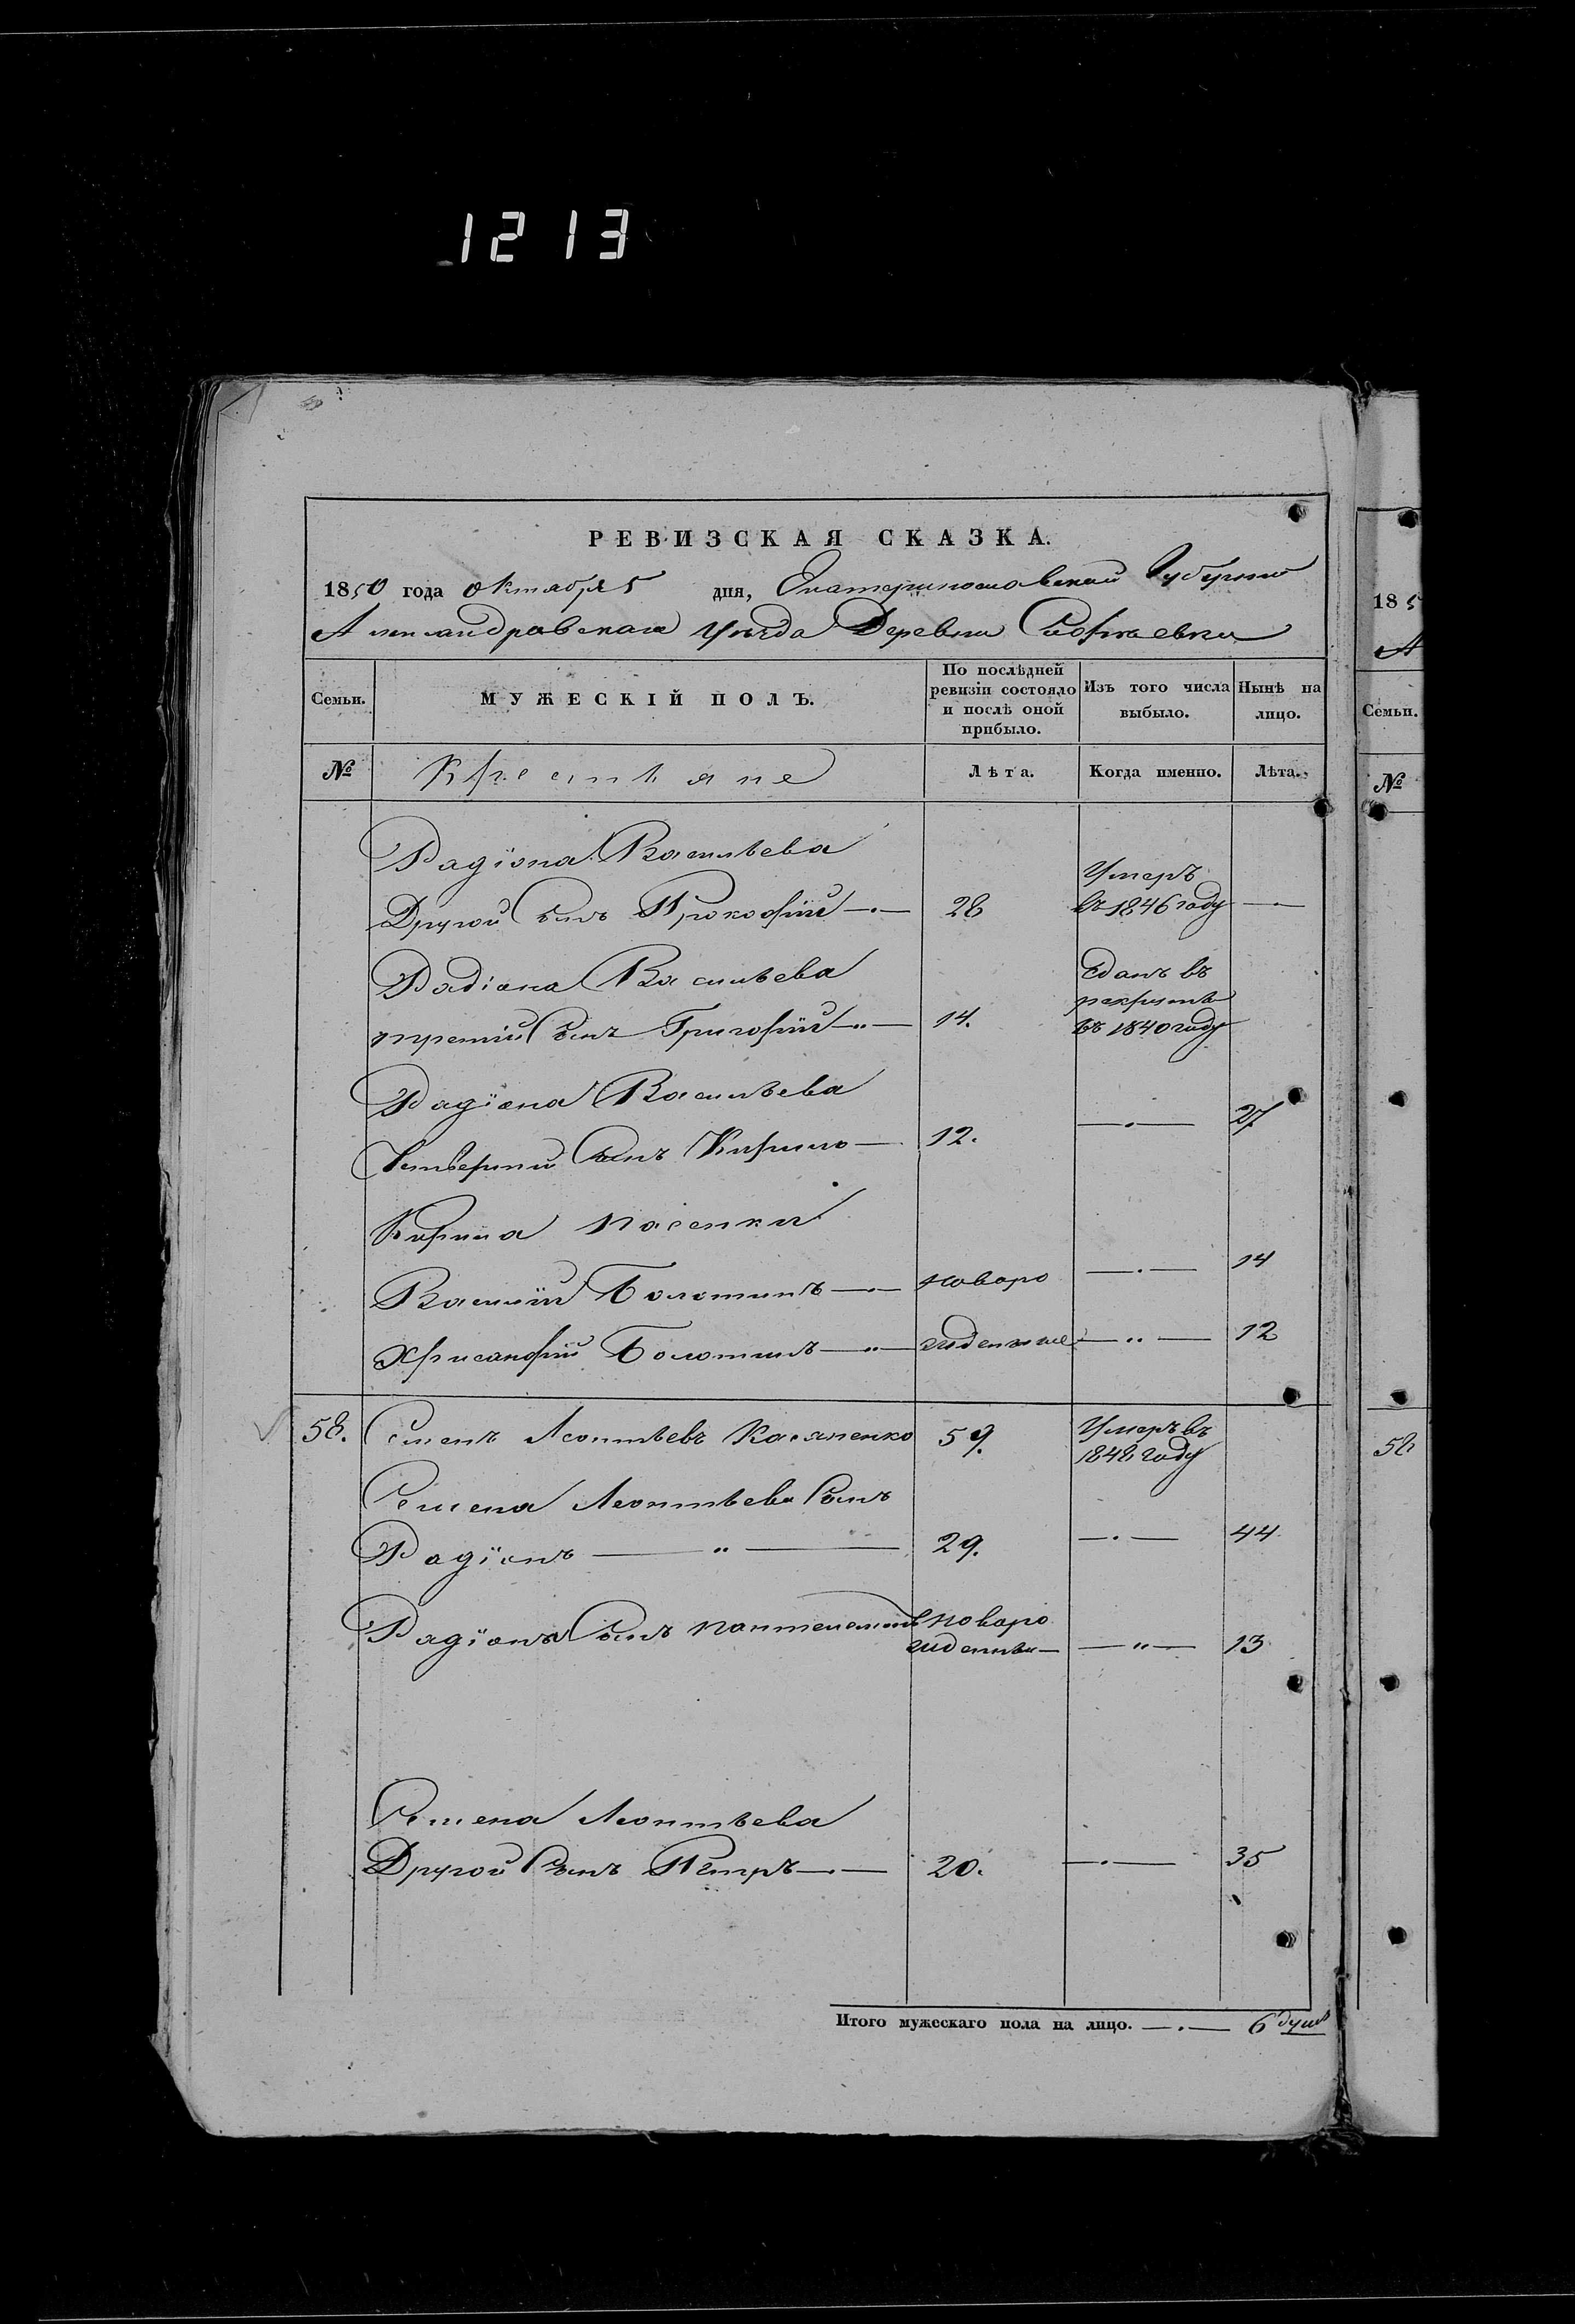 1213
РЕВИЗСКАЯ СКАЗКА.
1850 года Октября 5 дня, Екатеринославской Губернии
Александровскаго Уѣзда Деревни Софѣевки
Семьи.
МУЖЕСКІЙ ПОЛЪ.
По послѣдней ревизіи состояло и послѣ оной прибыло.
Изъ того числа выбыло.
Нынѣ на лицо.
№ Крестьяне Лѣта. Когда именно. Лѣта.
Радіона Васильева
Умеръ
Другой сынъ Прокофій —·— 28 въ 1846 году —·—
Радіона Васильева Сданъ въ
рекруты
третій сынъ Григорій —··— 14. въ 1840 году
Радіона Васильева
Четвертый сынъ Кирило — 12. —·— 27
Кирила пасенки
Василій Болотинъ —·— новоро —·— 14
Хрисанфій Болотинъ —··— жденные —··— 12
58. Семенъ Леонтьевъ Касяненко 59. Умеръ въ
1848 году
Семена Леонтьева сынъ
Радіонъ —··— 29. —·— 44
Радіона сынъ Пантелемонъ новоро
жденны— —··— 13
Семена Леонтьева
Другой сынъ Петръ —·— 20. —·— 35
Итого мужескаго пола на лицо. —·— 6 душъ
185
А
Семьи.
№
58